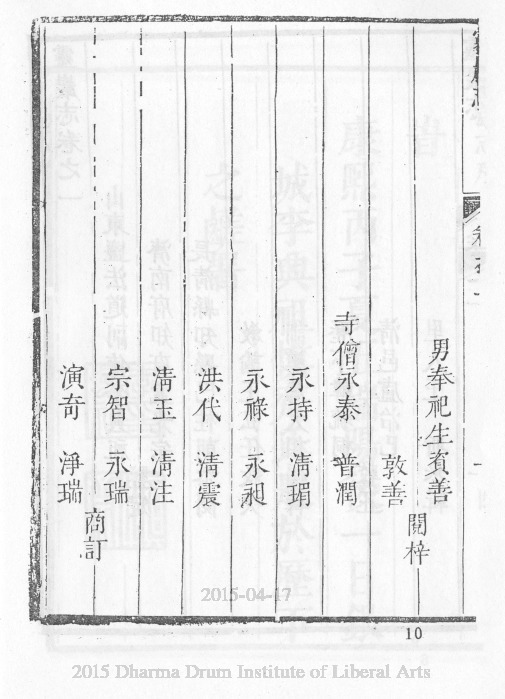 男奉祀生賓善
敦善
閱梓
寺僧永泰 普潤
永持 清琄
永祿 永昶
洪代 清震
清玉 清注
宗智 永瑞
演奇 淨瑞
商訂
10
2015-04-17
2015 Dharma Drum Institute of Liberal Arts